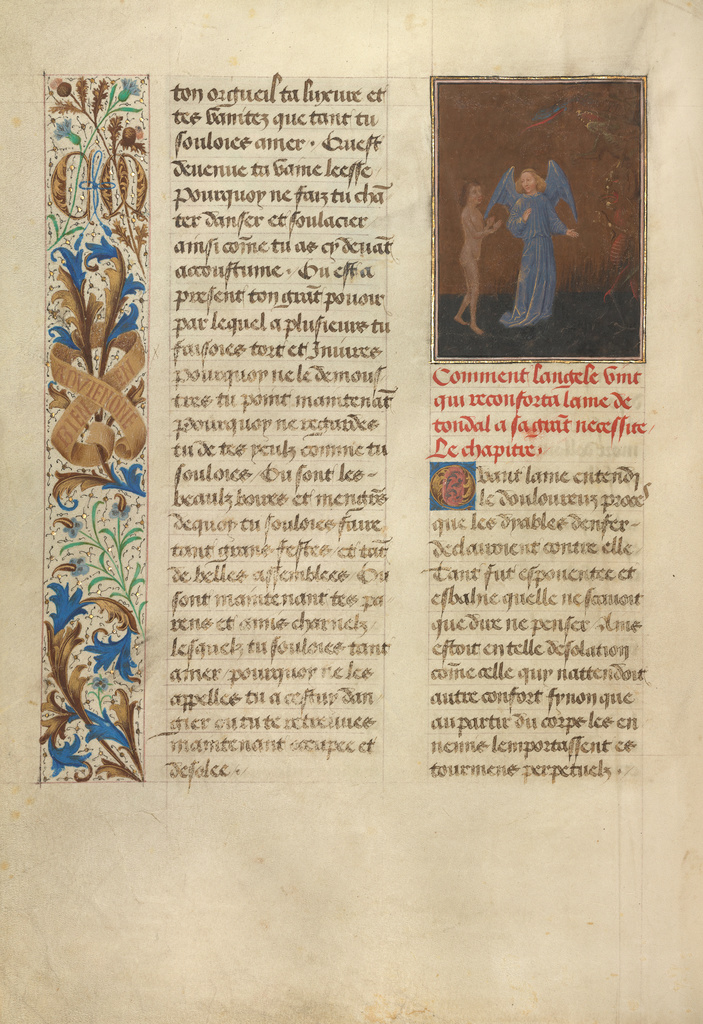 ton orgueil ta luxure et
tes vanitez que tant tu
souloies amer . Quest
devenue ta vaine leesse
Pourquoy ne faiz tu chā
ter danser et soulacier
ainsi cōme tu as cy devāt
accoustume . Ou est a
present ton grāt pouoir
par lequel a plusieurs tu
faisoies tort et Iniures
Pourquoy ne le demous
tres tu point maintenāt
Pourquoy ne regardes
tu de tes yeulx comme tu
souloies Ou sont les
beaulz boires et mengiers
de quoy tu souloies faire
tant grans festes et tāt
de belles assemblees Ou
sont maintenant tes pa
rens et amis charnelz
lesquelz tu souloies tant
amer pourquoy ne les
appelles tu a cestui dan
gier ou tu te retrouves
maintenant occupee et
desolee .
Comment langele vint
qui reconforta lame de
tondal a sa grāt necessite
Le chapitre .
Quant lame entendi
le douloureux proces
que les dyables denfer
declairoient contre elle
Tant fut espouentee et
esbahie quelle ne scavoit
que dire ne penser Ains
estoit en telle desolation
cōme celle quy nattendoit
autre confort synon que
au partir du corps les en
nemis lemportassent es
tourmens perpetuelz .